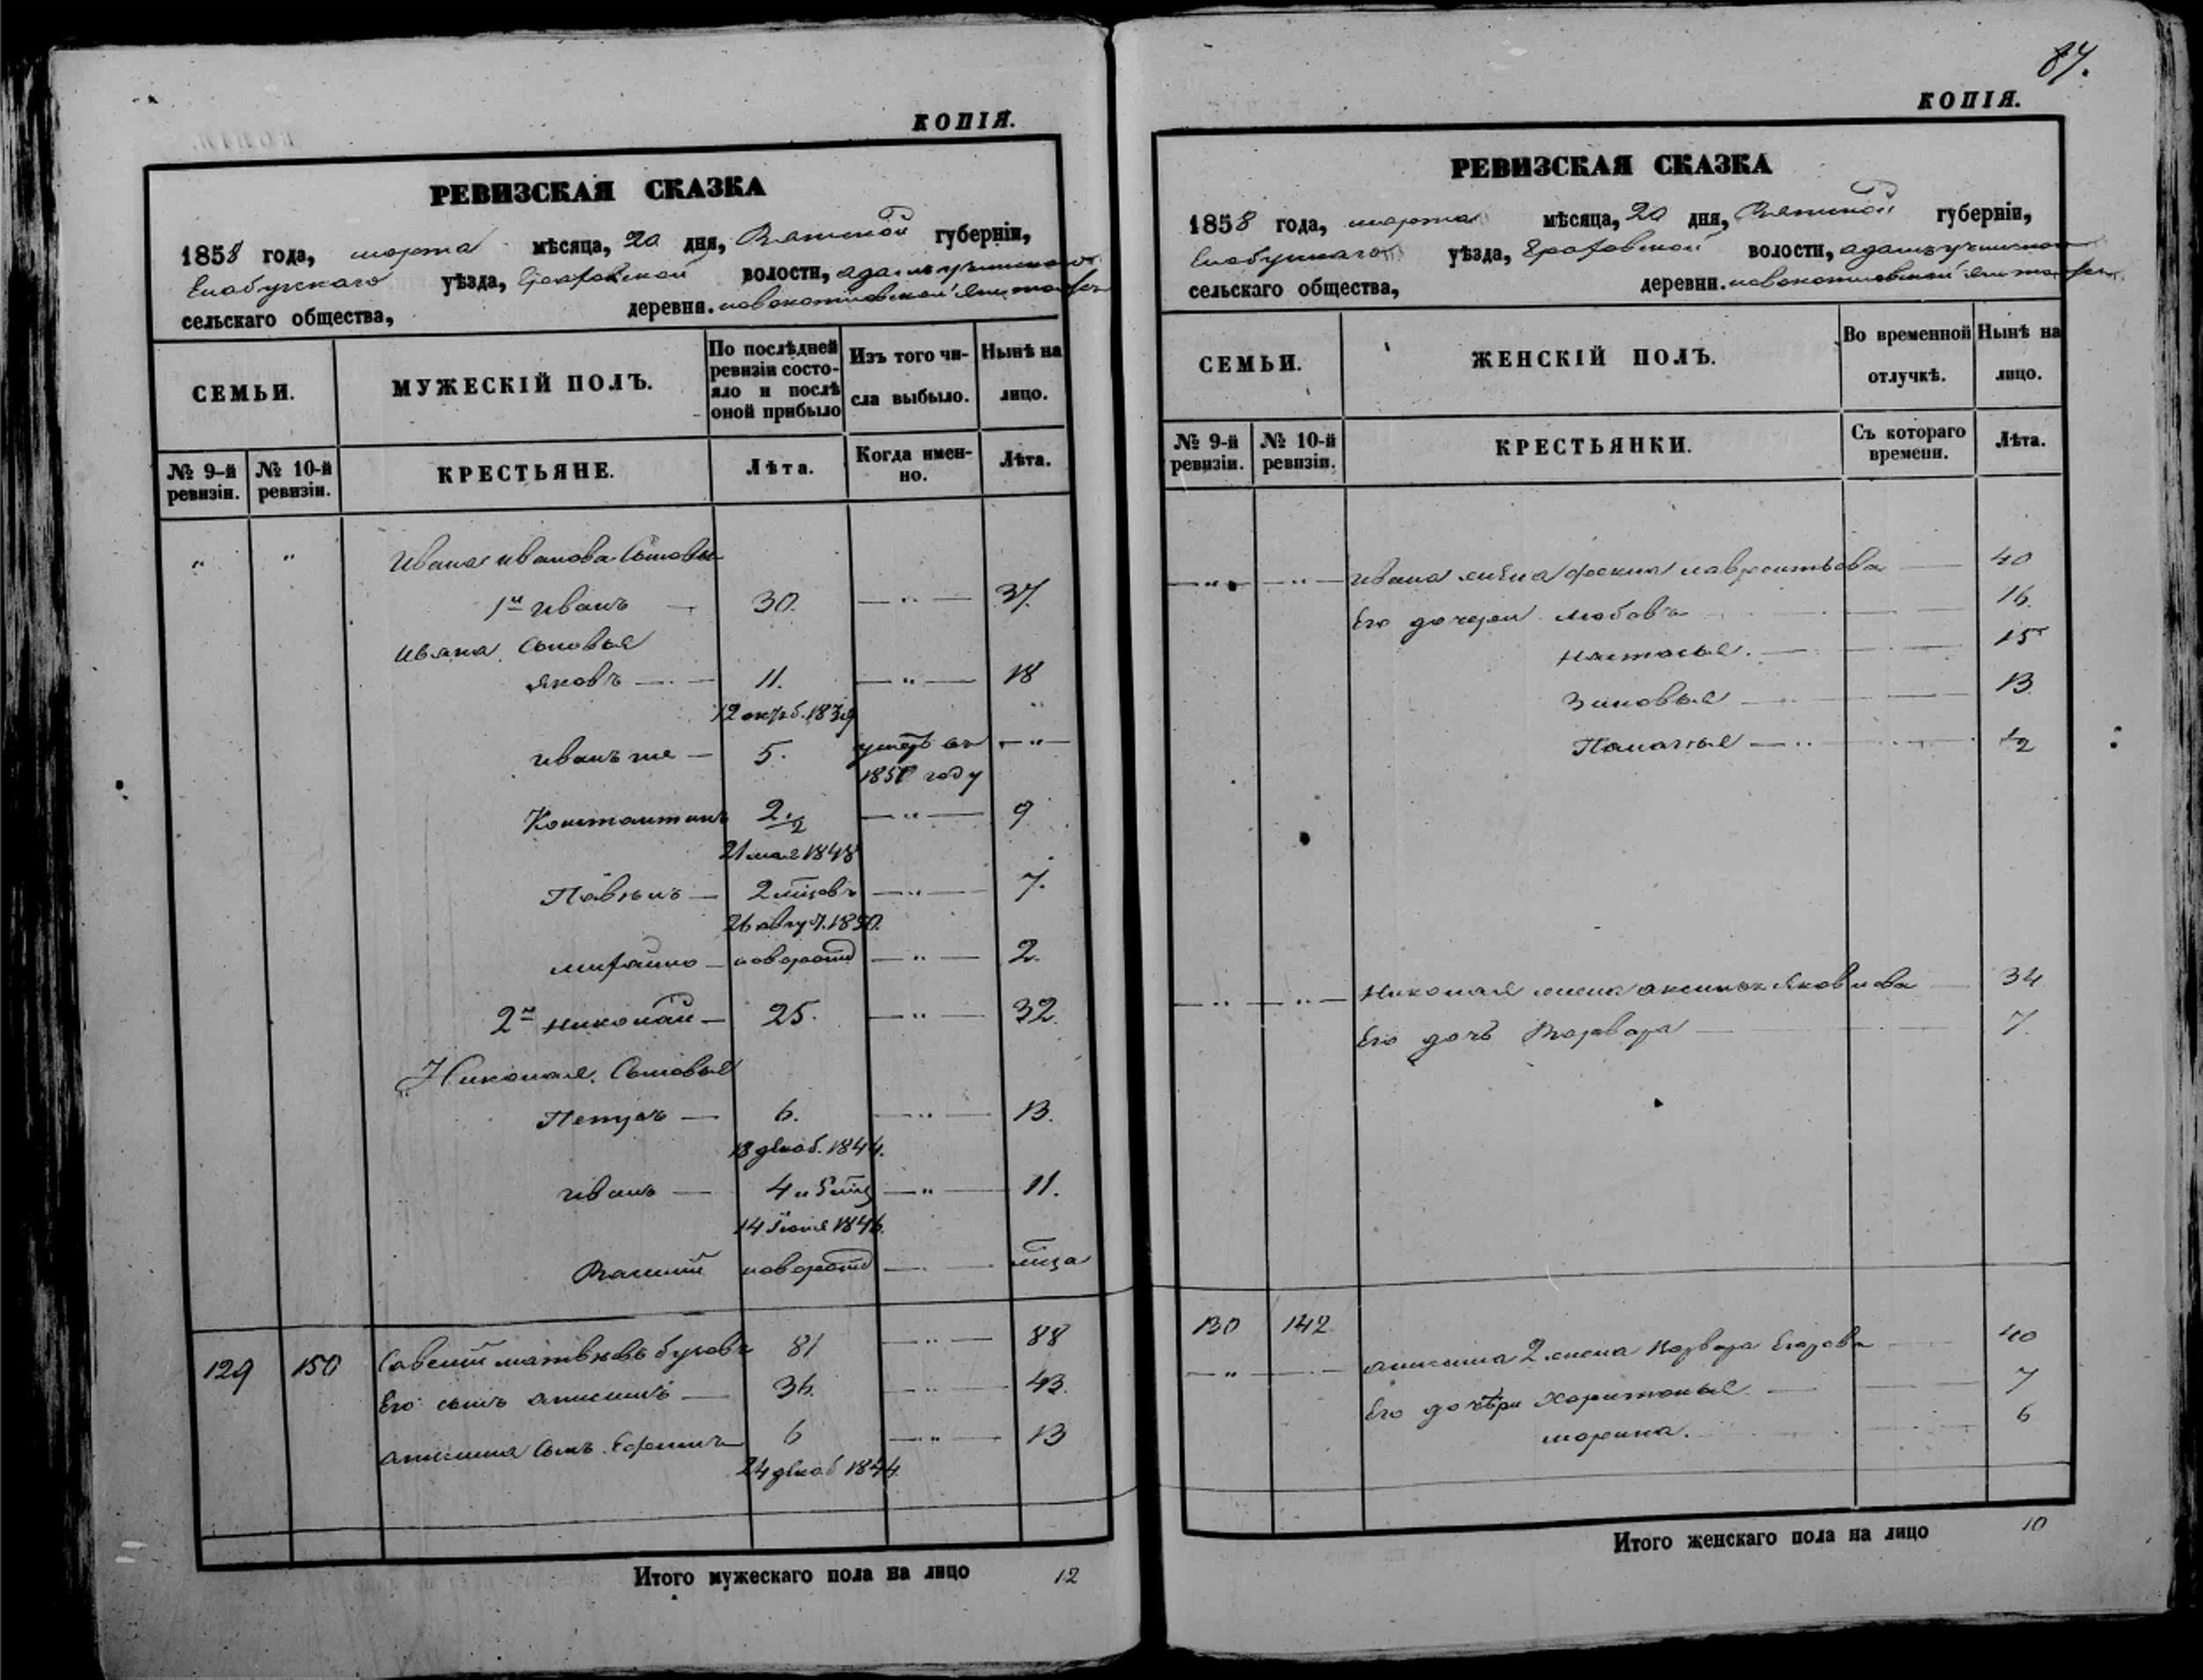 КОПІЯ.
РЕВИЗСКАЯ СКАЗКА
1858 года, марта мѣсяца, 20 дня, Вятской губерніи,
Елабужскаго уѣзда, волости,
сельскаго общества, деревни.
СЕМЬИ.
МУЖЕСКІЙ ПОЛЪ.
По послѣдней ревизіи состояло и послѣ оной прибыло
Изъ того числа выбыло.
Нынѣ на лицо.
№ 9-й ревизіи.
№ 10-й ревизіи.
КРЕСТЬЯНЕ.
Лѣта.
Когда именно.
Лѣта.
" " Ивана Иванова Сыновья
1й Иванъ 30. — " — 37.
Ивана Сыновья
Яковъ 11. — " — 18
12 октяб. 1839 "
Иванъ же 5. умеръ въ — " —
1850 году
Константинъ 2 1/2 — " — 9
21 мая 1848
Павелъ 2 мѣсцовъ — " — 7.
26 авгус. 1850.
новорожд — " — 2.
2й Николай 25. — " — 32.
Николая Сыновья
Петръ 6. — " — 13.
13 декаб. 1844.
Иванъ 4 и 5 мѣс — " — 11.
14 Іюля 1846.
Василій новорожд — мѣца
129 150 Савелій Матвѣевъ 81 — " — 88
Его сынъ Анисимъ 36. — " — 43.
Анисима Сынъ Ефремъ 6 — " — 13
24 декаб 1844.
Итого мужескаго пола на лицо 12
84.
КОПІЯ.
РЕВИЗСКАЯ СКАЗКА
1858 года, марта мѣсяца, 20 дня, Вятской губерніи,
Елабужскаго уѣзда, волости,
сельскаго общества, деревни.
СЕМЬИ.
ЖЕНСКІЙ ПОЛЪ.
Во временной отлучкѣ.
Нынѣ на лицо.
№ 9-й ревизіи.
№ 10-й ревизіи.
КРЕСТЬЯНКИ.
Съ котораго времени.
Лѣта.
— " — " — Ивана жена Фекла Лаврентьева 40
Его дочери Любовь 16.
Настасья. 15
Зиновья 13
Пелагея 1/2
— " — " — Николая жена Аксинья Яковлева 34
Его дочь Варвара 7.
130 142
— " — Анисима 2 жена Варвара Егорова 40
Его дочери Харитонья 7
Марина. 6
Итого женскаго пола на лицо 10